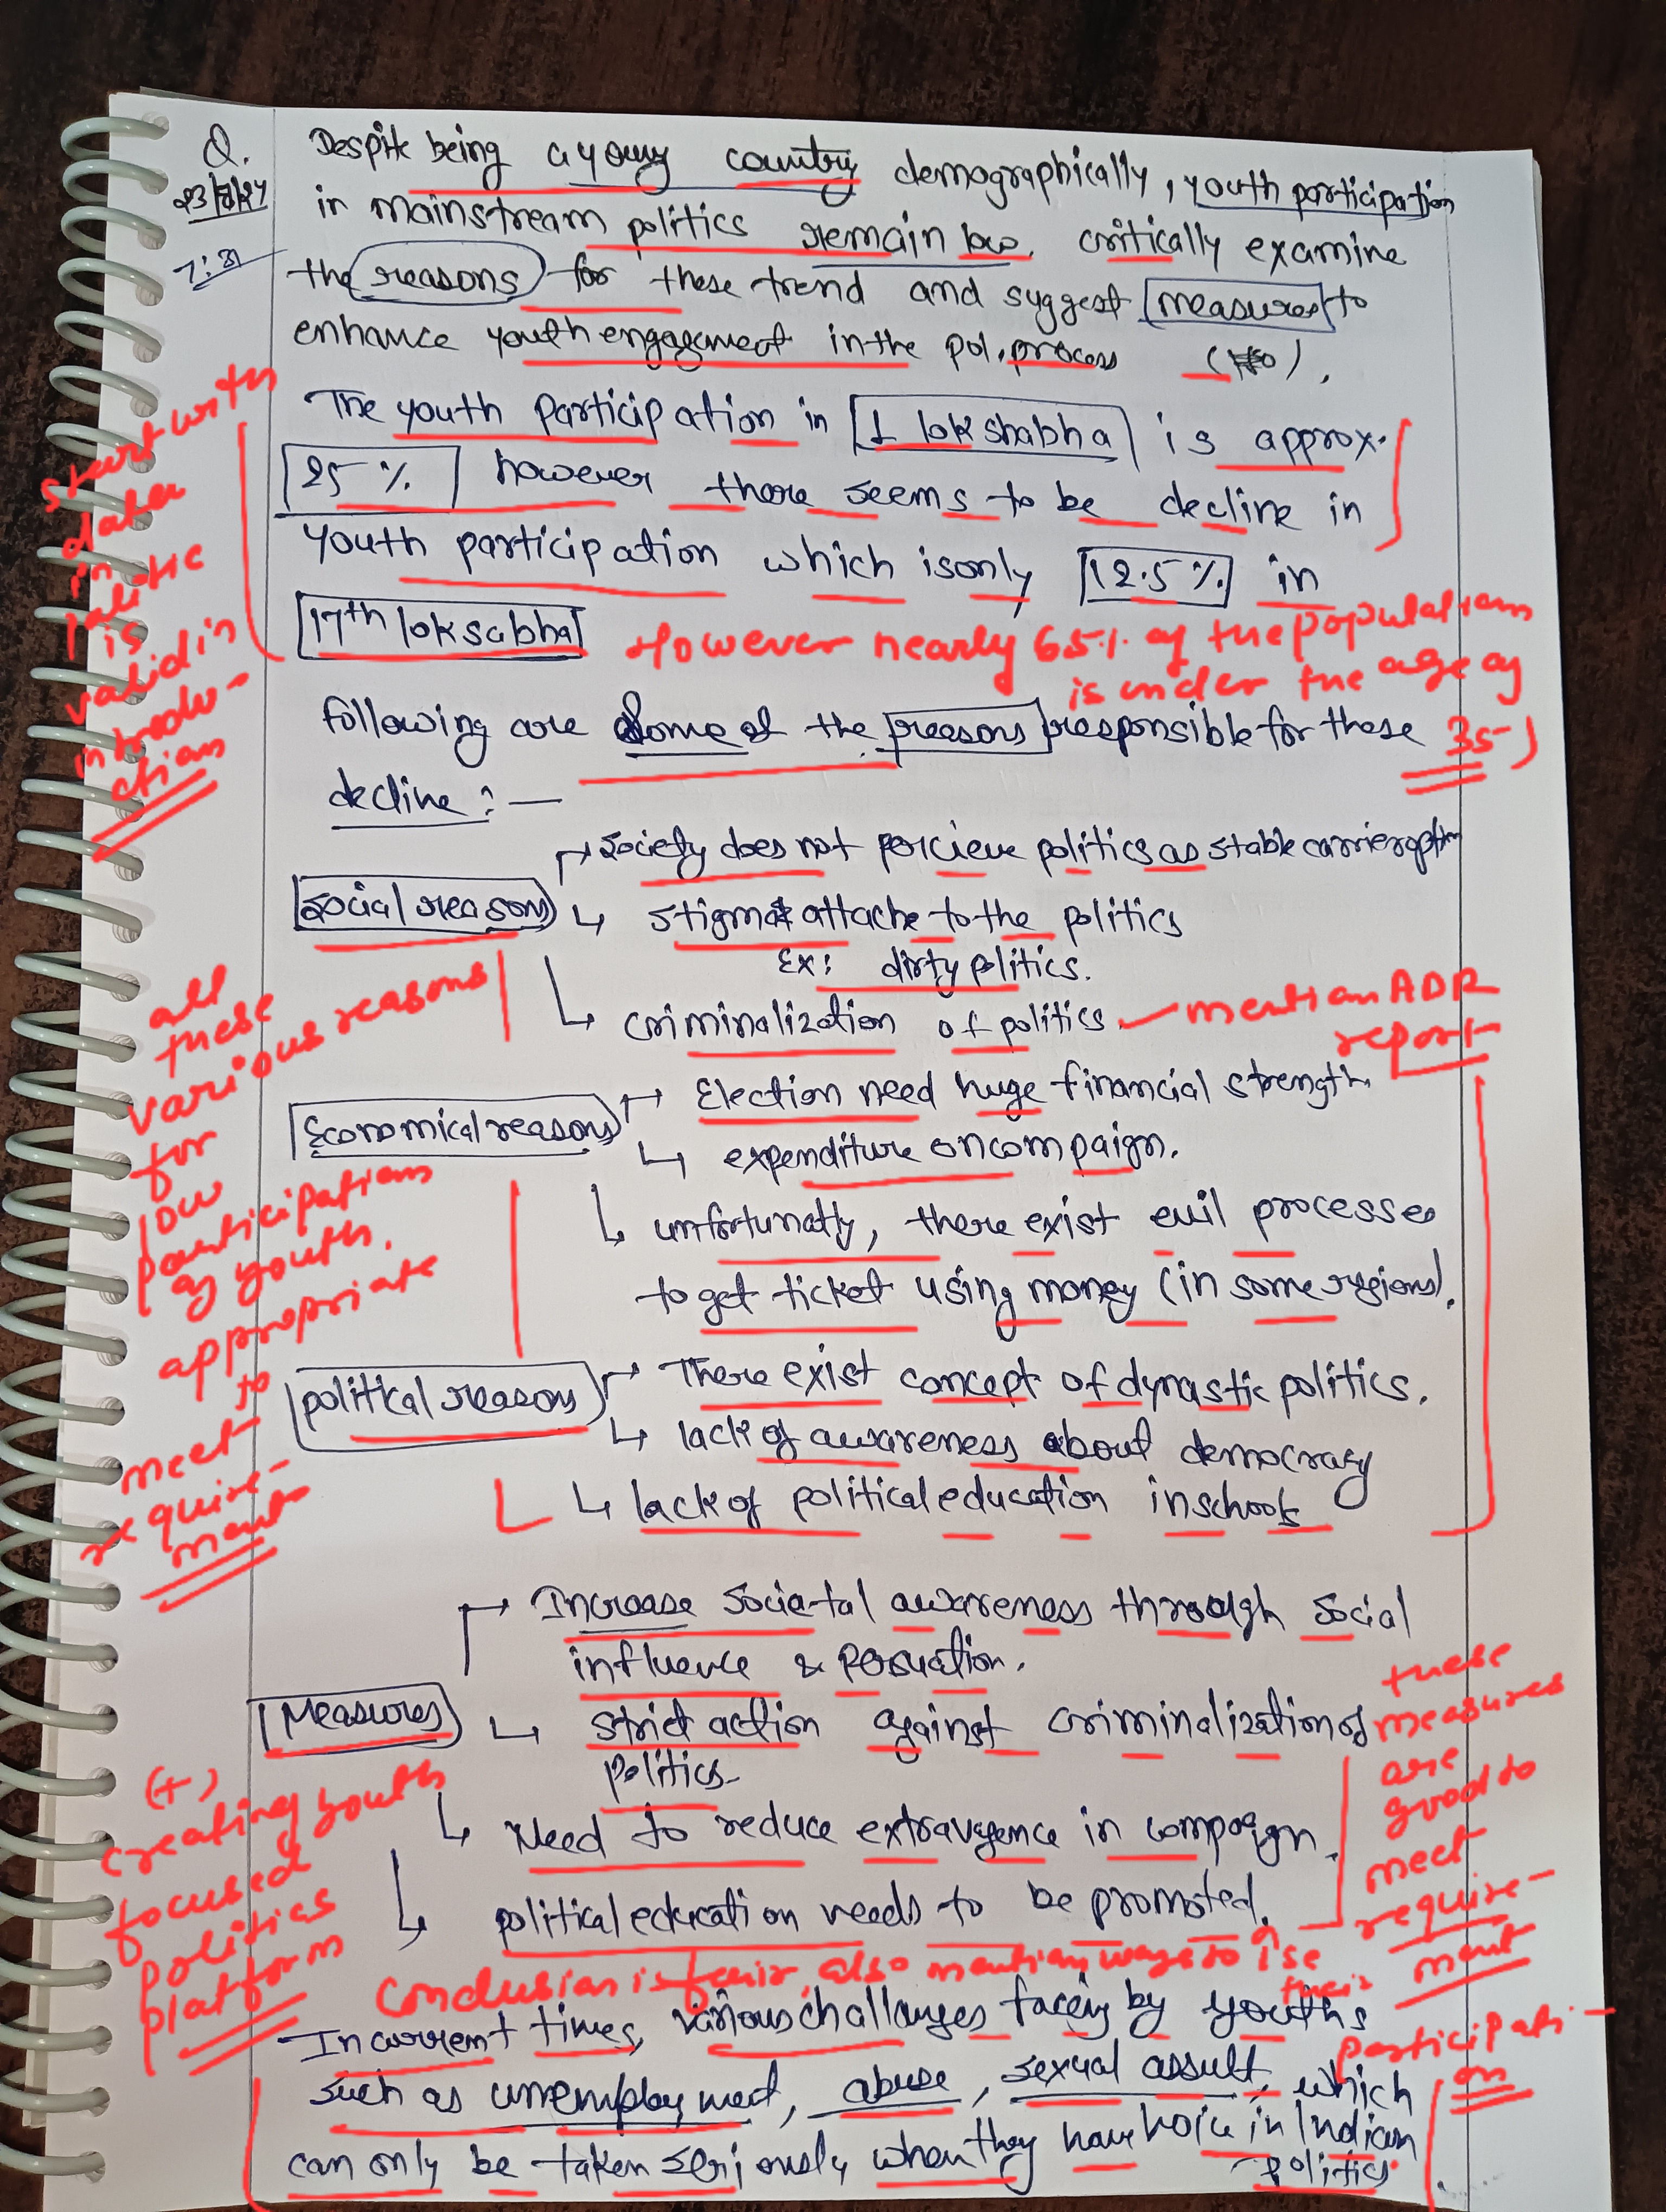 Q. Despite being a young country demographically, youth participation
23/8/24 in mainstream politics remain low. critically examine
7:31 the reasons for these trend and suggest measures to
enhance youth engagement in the pol. process
The youth participation in 1 lok shabha is approx.
25% however there seems to be decline in
youth participation which is only 12.5% in
17th lok sabha
start with
data
in
is
valid in
introdu-
ction
However nearly 65% of the population
is under the age of
35)
following are some of the reasons responsible for these
decline : —
Social reasons
→ society does not percieve politics as stable carrier option
↳ stigma attache to the politics
Ex: dirty politics.
↳ criminalization of politics.
mention ADR
report
all
these
various reasons
for
low
participations
of youth.
appropriate
to
meet
require-
ment
Economical reasons
→ Election need huge financial strength.
↳ expenditure on compaign.
↳ unfortunatly, there exist evil processes
to get ticket using money (in some regions).
political reasons
→ There exist concept of dynastic politics.
↳ lack of awareness about democracy
↳ lack of political education in schools
Measures
→ Increase societal awareness through social
influence & persuation.
↳ strict action against criminalization of
politics
↳ Need to reduce extravagence in compaign.
↳ political education needs to be promoted.
these
measures
are
good to
meet
require-
ment
(+)
creating youth
focused
politics
platform
Conclusion is fair, also mention ways to ↑se
their
participati-
on
In current times, various challanges facing by youths
such as unemployment, abuse, sexual assult, which
can only be taken seriously when they have voice in Indian
politics.